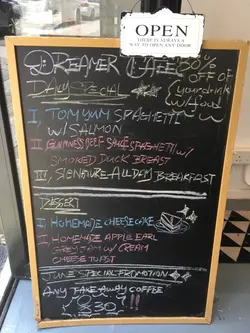 OPEN
THERE IS ALWAYS A
WAY TO OPEN ANY DOOR
DREAMER CAFE
50%
OFF OF
your drink
w/ food
DAILY SPECIAL
I, TOM YUM SPAGHETTI
W/ SALMON
II, GUINNESS BEEF SAUCE SPAGHETTI W/
SMOKED DUCK BREAST
III, SIGNATURE ALL DAY BREAKFAST
DESSERT
I, HOMEMADE CHEESECAKE
I, HOMEMADE APPLE EARL
GREY JAM W/ CREAM
CHEESE TOAST
JUNE SPECIAL PROMOTION
ANY TAKE AWAY COFFEE